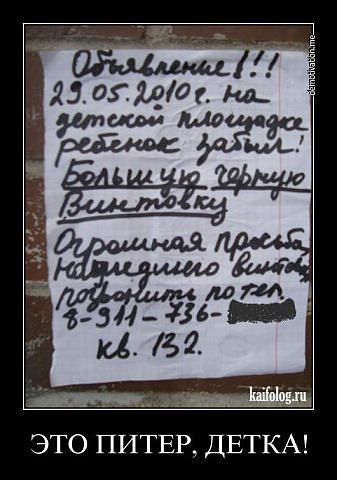 demotivation.me
Объявление!!!
29.05.2010г. на
детской площадке
ребенок забыл!
Большую чёрную
Винтовку
Огромная просьба
нашедшего винтовку
позвонить по тел.
8-911-736-
кв. 132.
kaifolog.ru
ЭТО ПИТЕР, ДЕТКА!